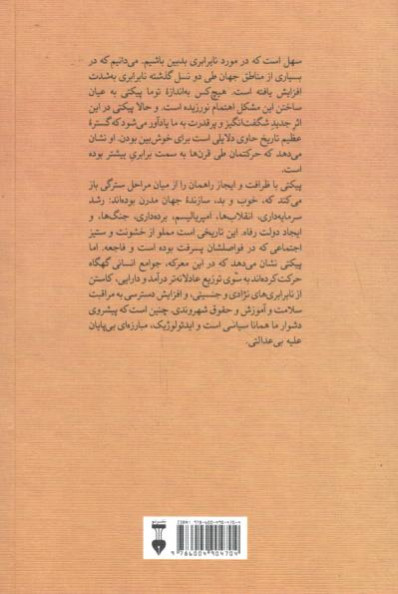 سهل است که در مورد نابرابری بدبین باشیم. می‌دانیم که در
بسیاری از مناطق جهان طی دو نسل گذشته نابرابری به‌شدت
افزایش یافته است. هیچ‌کس به‌اندازهٔ توما پیکتی به عیان
ساختن این مشکل اهتمام نورزیده است. و حالا پیکتی در این
اثر جدیدِ شگفت‌انگیز و پرقدرت به ما یادآور می‌شود که گسترهٔ
عظیم تاریخ حاوی دلایلی است برای خوش‌بین بودن. او نشان
می‌دهد که حرکتمان طی قرن‌ها به سمت برابریِ بیشتر بوده
است.
پیکتی با ظرافت و ایجاز راهمان را از میان مراحل سترگی باز
می‌کند که، خوب و بد، سازندهٔ جهان مدرن بوده‌اند: رشد
سرمایه‌داری، انقلاب‌ها، امپریالیسم، برده‌داری، جنگ‌ها، و
ایجاد دولت رفاه. این تاریخی است مملو از خشونت و ستیز
اجتماعی که در فواصلشان پسرفت بوده است و فاجعه. اما
پیکتی نشان می‌دهد که در این معرکه، جوامع انسانی گهگاه
حرکت کرده‌اند به سوی توزیع عادلانه‌تر درآمد و دارایی، کاستن
از نابرابری‌های نژادی و جنسیتی، و افزایش دسترسی به مراقبت
سلامت و آموزش و حقوق شهروندی. چنین است که پیشرویِ
دشوار ما همانا سیاسی است و ایدئولوژیک، مبارزه‌ای بی‌پایان
علیه بی‌عدالتی.
ISBN: 978-600-490-470-4
9 786004 904704